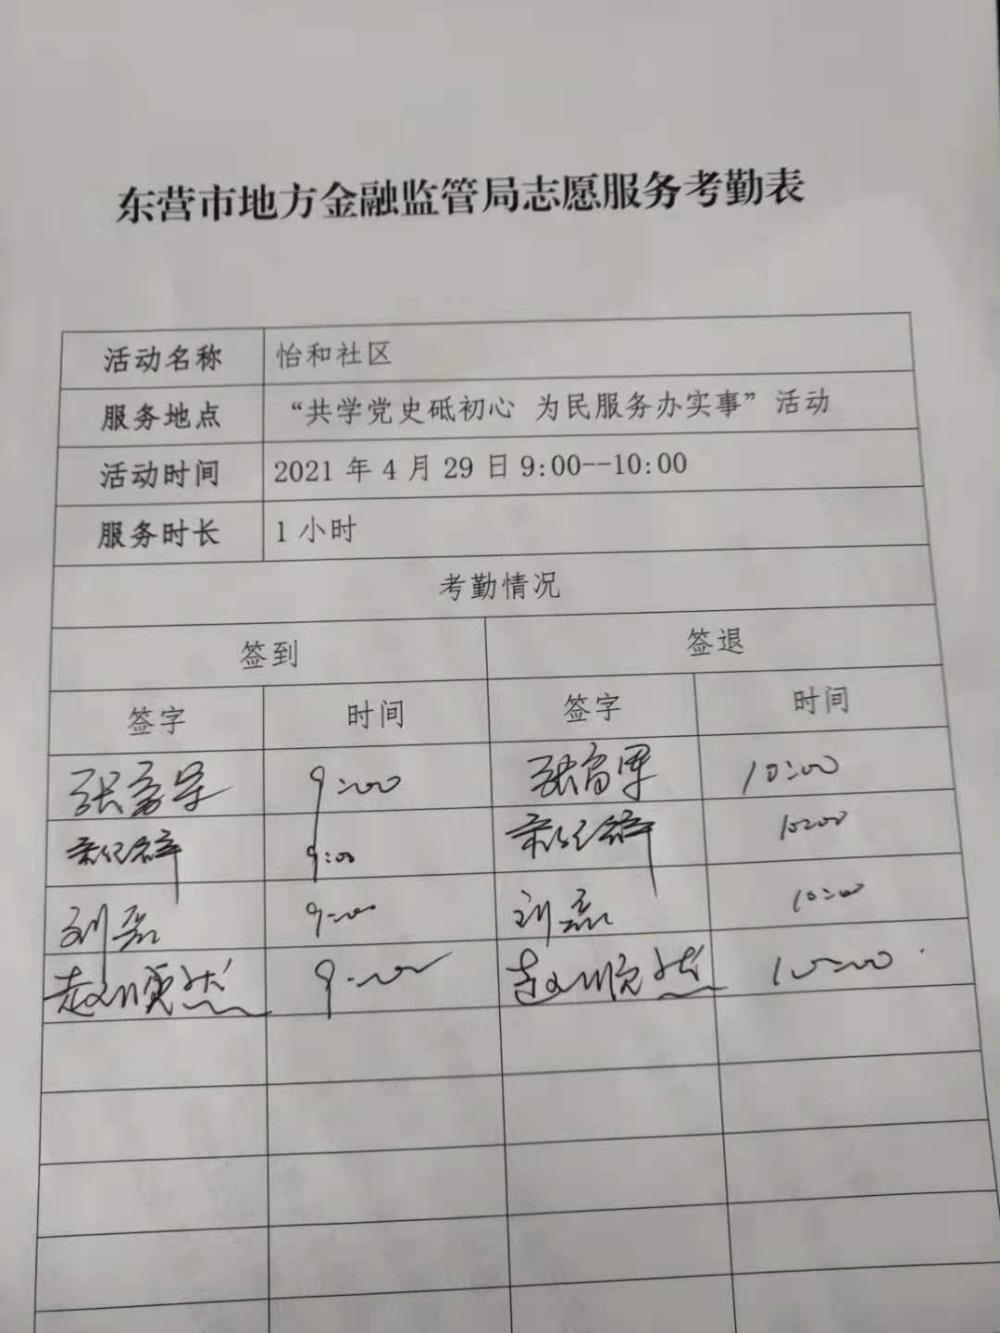 东营市地方金融监管局志愿服务考勤表
活动名称 怡和社区
服务地点 “共学党史砥初心 为民服务办实事”活动
活动时间 2021年4月29日9:00--10:00
服务时长 1小时
考勤情况
签到 签退
签字 时间 签字 时间
9:00 10:00
9:00 10:00
刘磊 9:00 刘磊 10:00
赵顺然 9:00 赵顺然 10:00